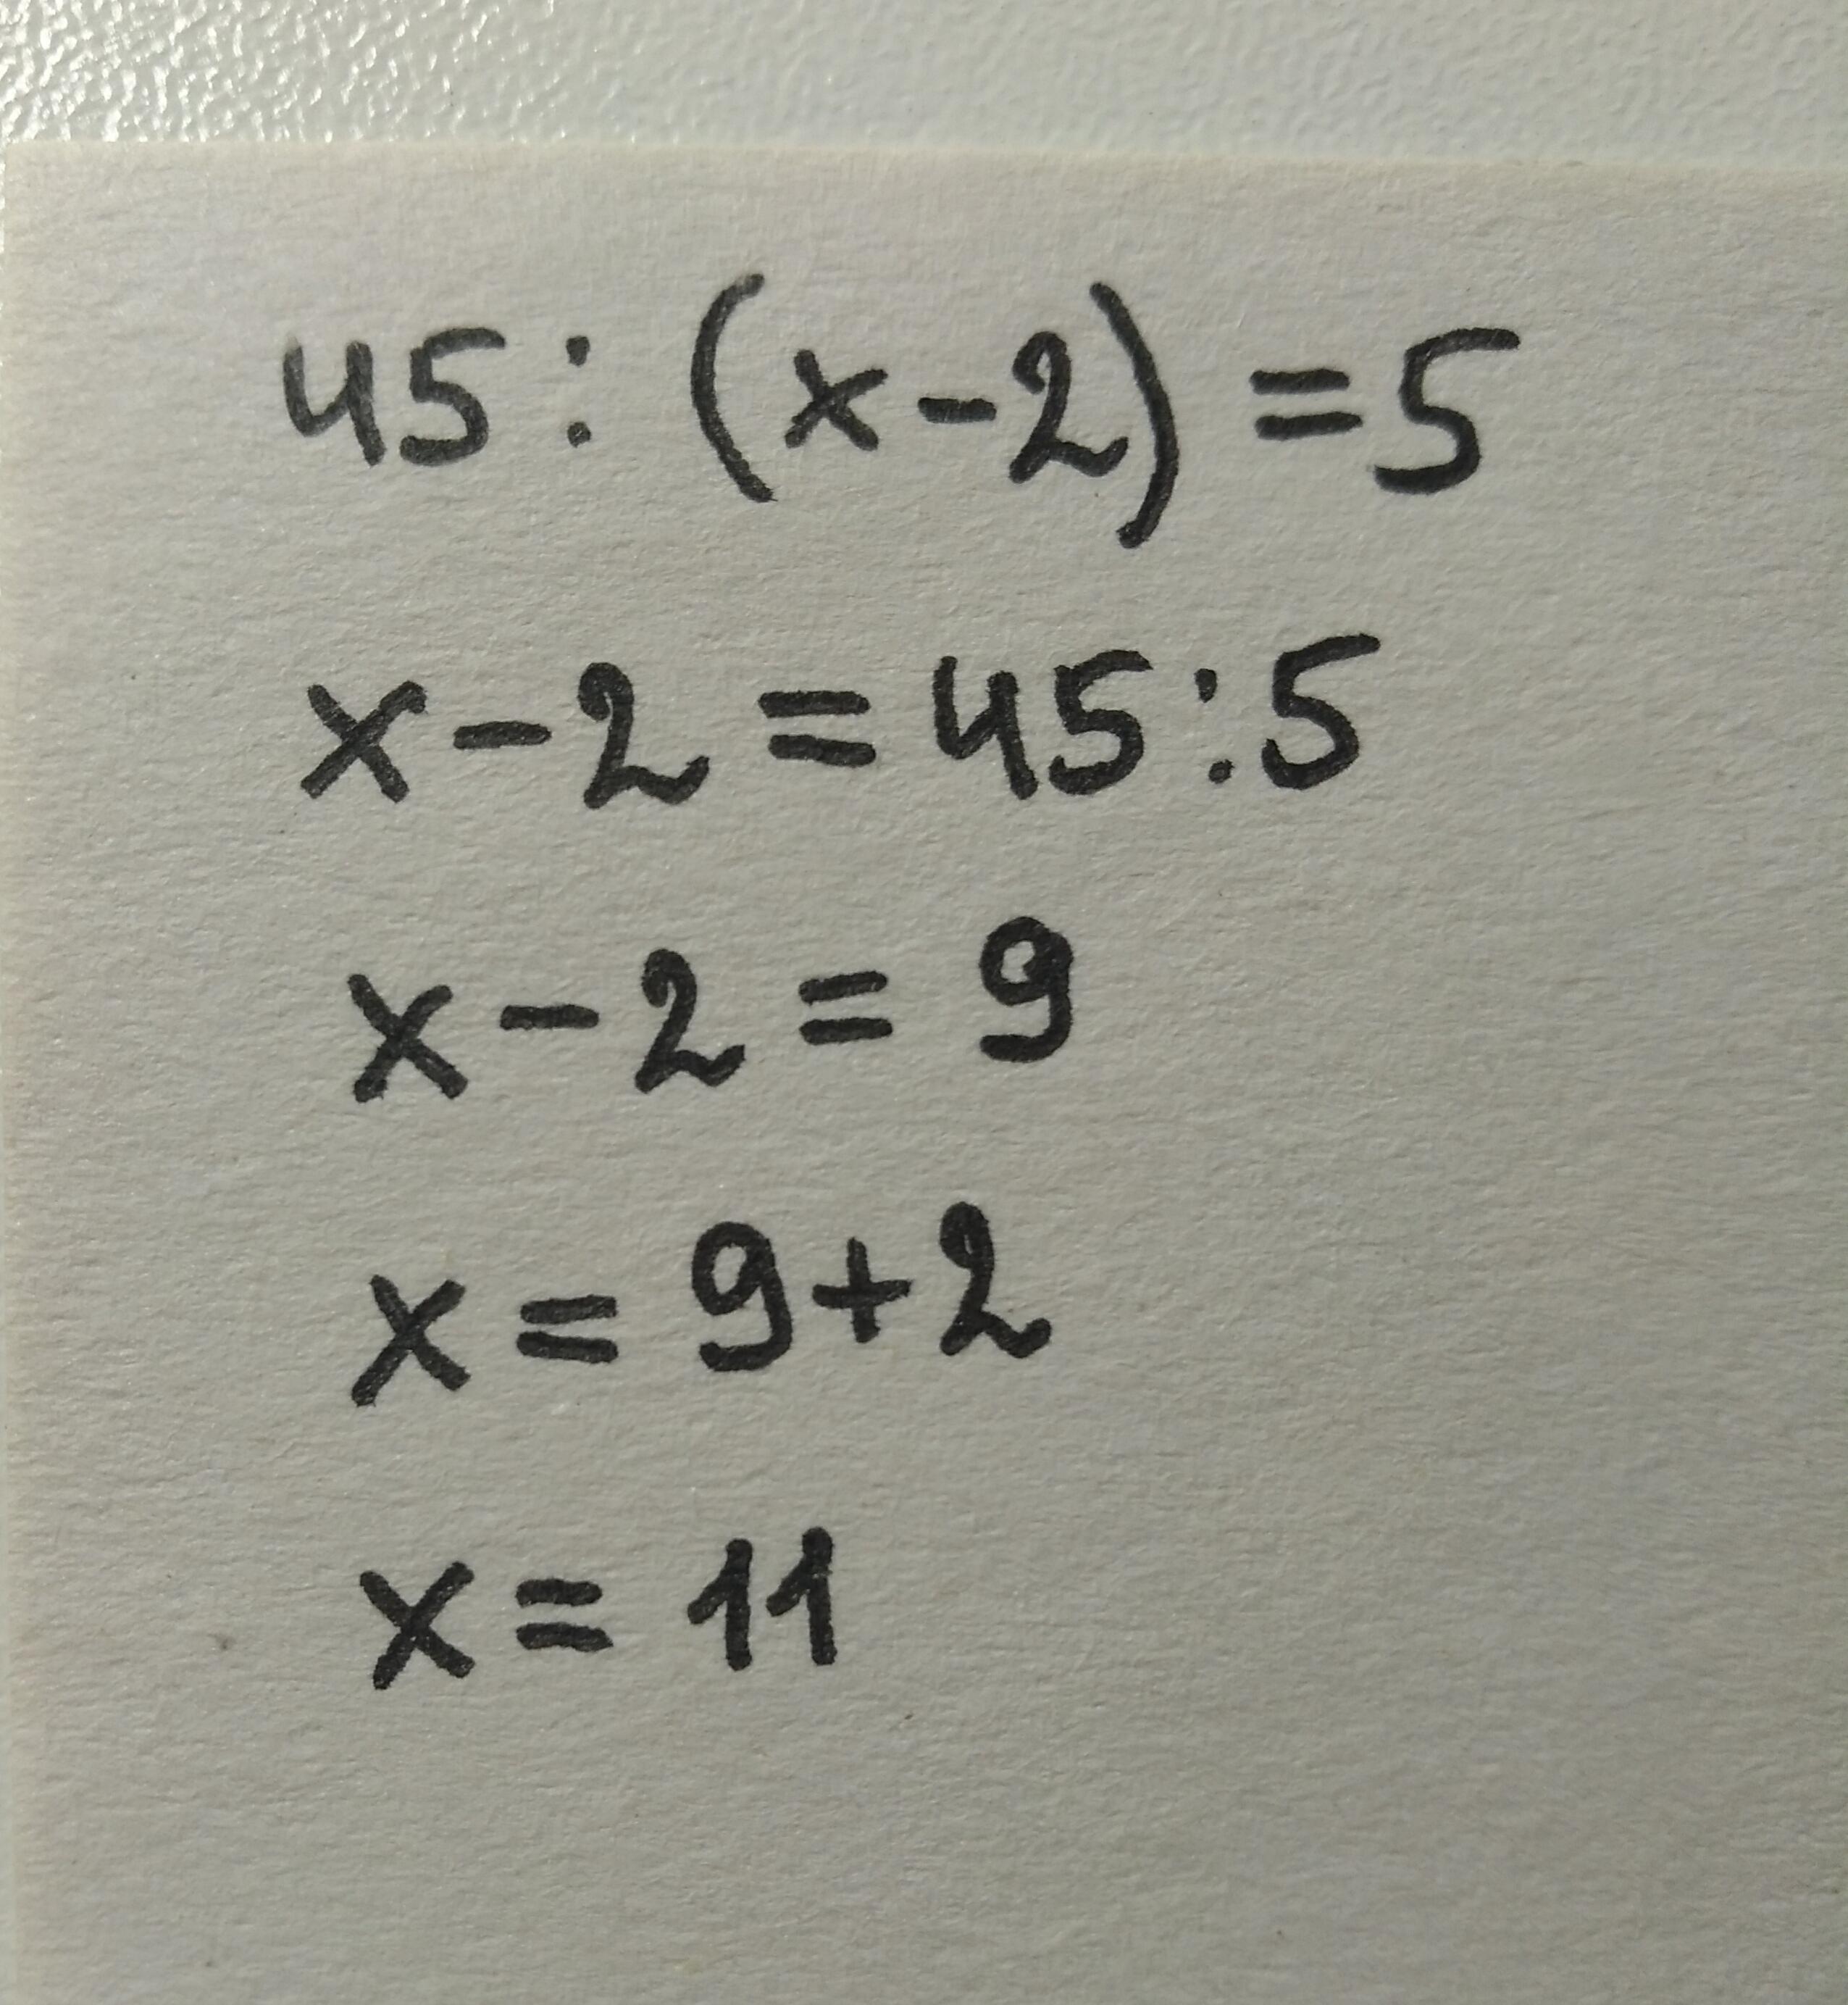 45 : (x-2) = 5
x-2 = 45:5
x-2 = 9
x = 9+2
x = 11